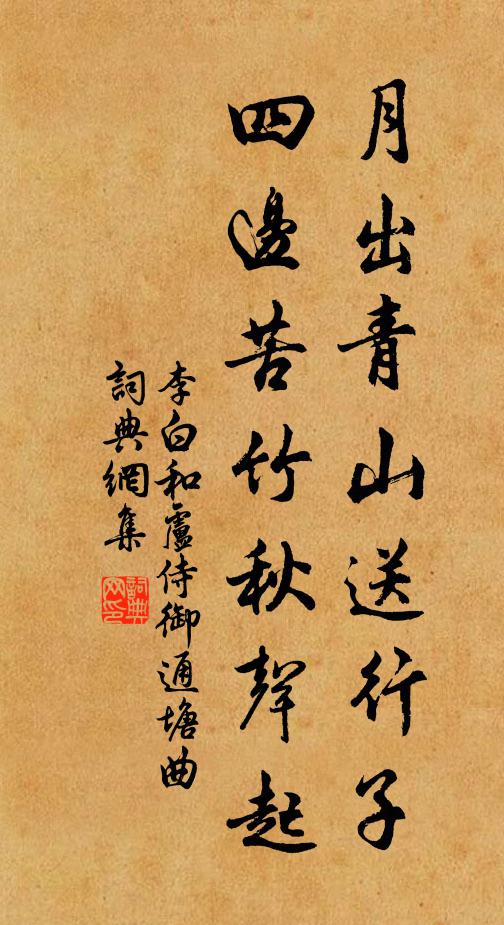 月出青山送行子
四邊苦竹秋聲起
李白和盧侍御通塘曲
詞典網集
詞典網印